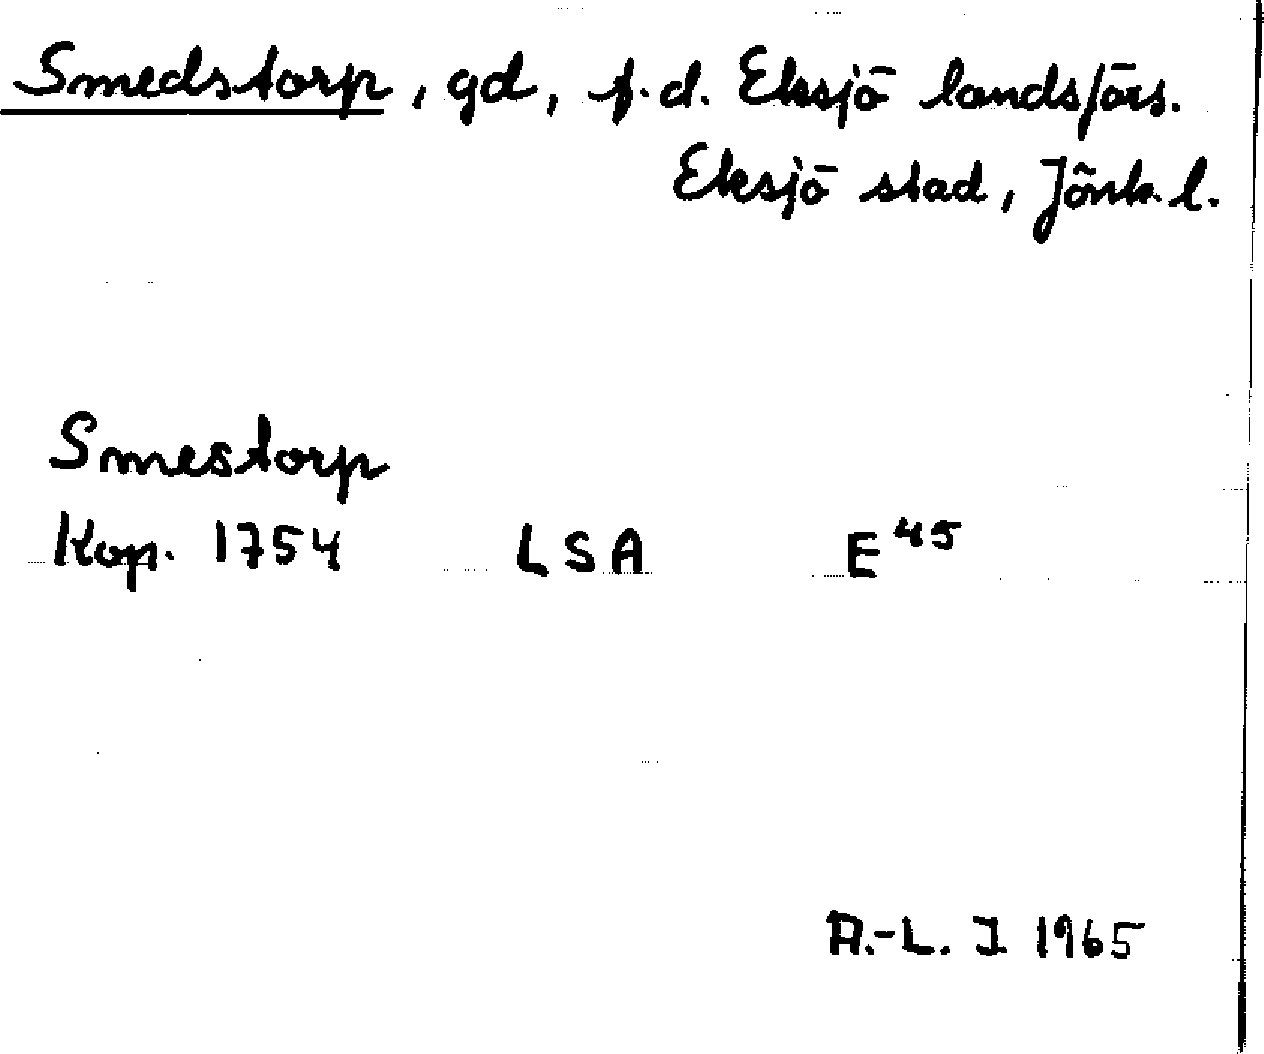 Smedstorp, gd, f.d. Eksjö landsförs.
Eksjö stad, Jönk. l.
Smestorp
Kop. 1754 LSA E 45
A.-L. J 1965